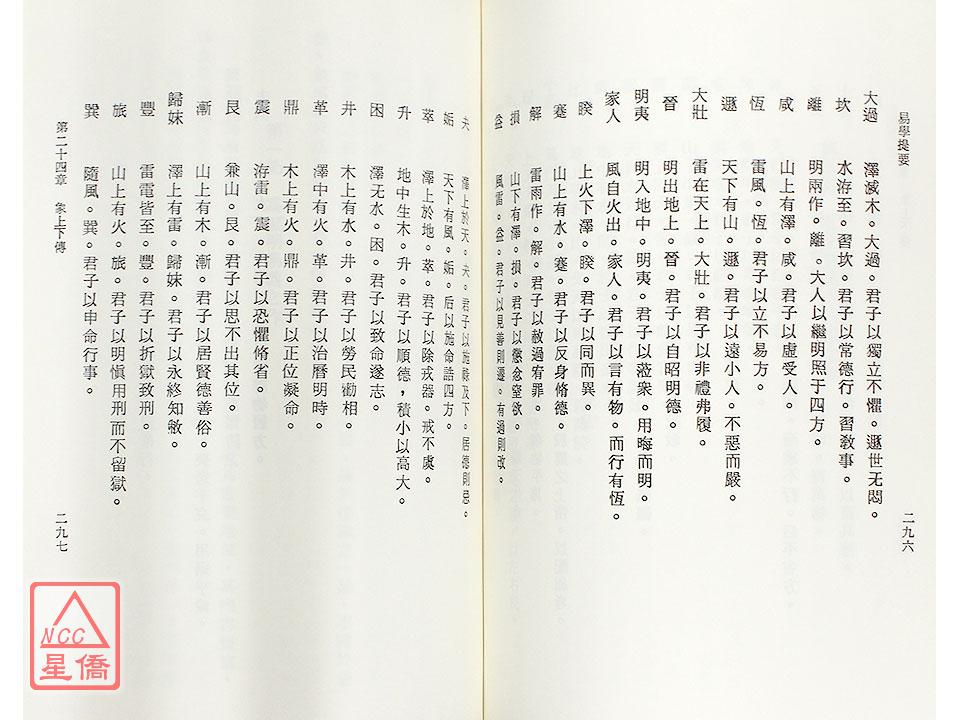 易學提要
大過　澤滅木。大過。君子以獨立不懼。遯世无悶。
坎　水洊至。習坎。君子以常德行。習教事。
離　明兩作。離。大人以繼明照于四方。
咸　山上有澤。咸。君子以虛受人。
恆　雷風。恆。君子以立不易方。
遯　天下有山。遯。君子以遠小人。不惡而嚴。
大壯　雷在天上。大壯。君子以非禮弗履。
晉　明出地上。晉。君子以自昭明德。
明夷　明入地中。明夷。君子以蒞衆。用晦而明。
家人　風自火出。家人。君子以言有物。而行有恆。
睽　上火下澤。睽。君子以同而異。
蹇　山上有水。蹇。君子以反身脩德。
解　雷雨作。解。君子以赦過宥罪。
損　山下有澤。損。君子以懲忿窒欲。
益　風雷。益。君子以見善則遷。有過則改。
二九六
夬　澤上於天。夬。君子以施祿及下。居德則忌。
姤　天下有風。姤。后以施命誥四方。
萃　澤上於地。萃。君子以除戎器。戒不虞。
升　地中生木。升。君子以順德，積小以高大。
困　澤无水。困。君子以致命遂志。
井　木上有水。井。君子以勞民勸相。
革　澤中有火。革。君子以治曆明時。
鼎　木上有火。鼎。君子以正位凝命。
震　洊雷。震。君子以恐懼脩省。
艮　兼山。艮。君子以思不出其位。
漸　山上有木。漸。君子以居賢德善俗。
歸妹　澤上有雷。歸妹。君子以永終知敝。
豐　雷電皆至。豐。君子以折獄致刑。
旅　山上有火。旅。君子以明慎用刑而不留獄。
巽　隨風。巽。君子以申命行事。
第二十四章　象上下傳
二九七
NCC
星僑